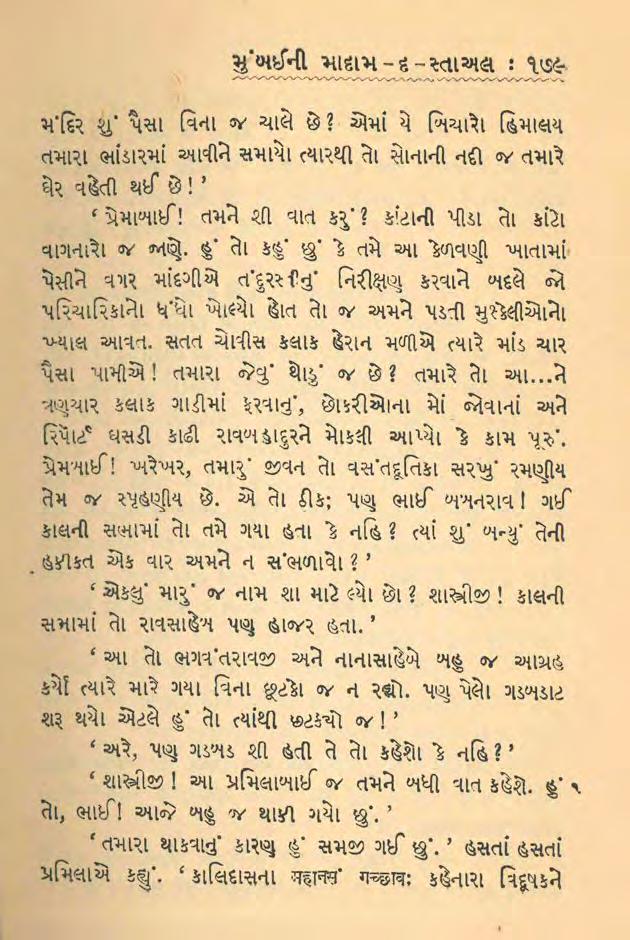 મુંબઈની માદામ-દ-સ્તાઅલ : ૧૭૯
મંદિર શું પૈસા વિના જ ચાલે છે? એમાં યે બિચારો હિમાલય
તમારા ભાંડારમાં આવીને સમાયો ત્યારથી તો સોનાની નદી જ તમારે
ઘેર વહેતી થઈ છે!’
‘પ્રેમાબાઈ! તમને શી વાત કરું? કાંટાની પીડા તો કાંટો
વાગનારો જ જાણે. હું તો કહું છું કે તમે આ કેળવણી ખાતામાં
પેસીને વગર માંદગીએ તંદુરસ્તીનું નિરીક્ષણ કરવાને બદલે જો
પરિચારિકાનો ધંધો ખોલ્યો હોત તો જ અમને પડતી મુશ્કેલીઓનો
ખ્યાલ આવત. સતત ચોવીસ કલાક હેરાન મળીએ ત્યારે માંડ ચાર
પૈસા પામીએ! તમારા જેવું થોડું જ છે? તમારે તો આ...ને
ત્રણચાર કલાક ગાડીમાં ફરવાનું, છોકરીઓના મોં જોવાનાં અને
રિપોર્ટ ઘસડી કાઢી રાવબહાદુરને મોકલી આપ્યો કે કામ પૂરું.
પ્રેમાબાઈ! ખરેખર, તમારું જીવન તો વસંતદૂતિકા સરખું રમણીય
તેમ જ સ્પૃહણીય છે. એ તો ઠીક; પણ ભાઈ બબનરાવ! ગઈ
કાલની સભામાં તો તમે ગયા હતા કે નહિ? ત્યાં શું બન્યું તેની
હકીકત એક વાર અમને ન સંભળાવો?’
‘એકલું મારું જ નામ શા માટે લ્યો છો? શાસ્ત્રીજી! કાલની
સભામાં તો રાવસાહેબ પણ હાજર હતા.’
‘આ તો ભગવંતરાવજી અને નાનાસાહેબે બહુ જ આગ્રહ
કર્યો ત્યારે મારે ગયા વિના છૂટકો જ ન રહ્યો. પણ પેલો ગડબડાટ
શરૂ થયો એટલે હું તો ત્યાંથી છટક્યો જ!’
‘અરે, પણ ગડબડ શી હતી તે તો કહેશો કે નહિ?’
‘શાસ્ત્રીજી! આ પ્રમિલાબાઈ જ તમને બધી વાત કહેશે. હું
તો, ભાઈ! આજે બહુ જ થાકી ગયો છું.’
‘તમારા થાકવાનું કારણ હું સમજી ગઈ છું.’ હસતાં હસતાં
પ્રમિલાએ કહ્યું. ‘કાલિદાસના महानसं गच्छाव: કહેનારા વિદૂષકને